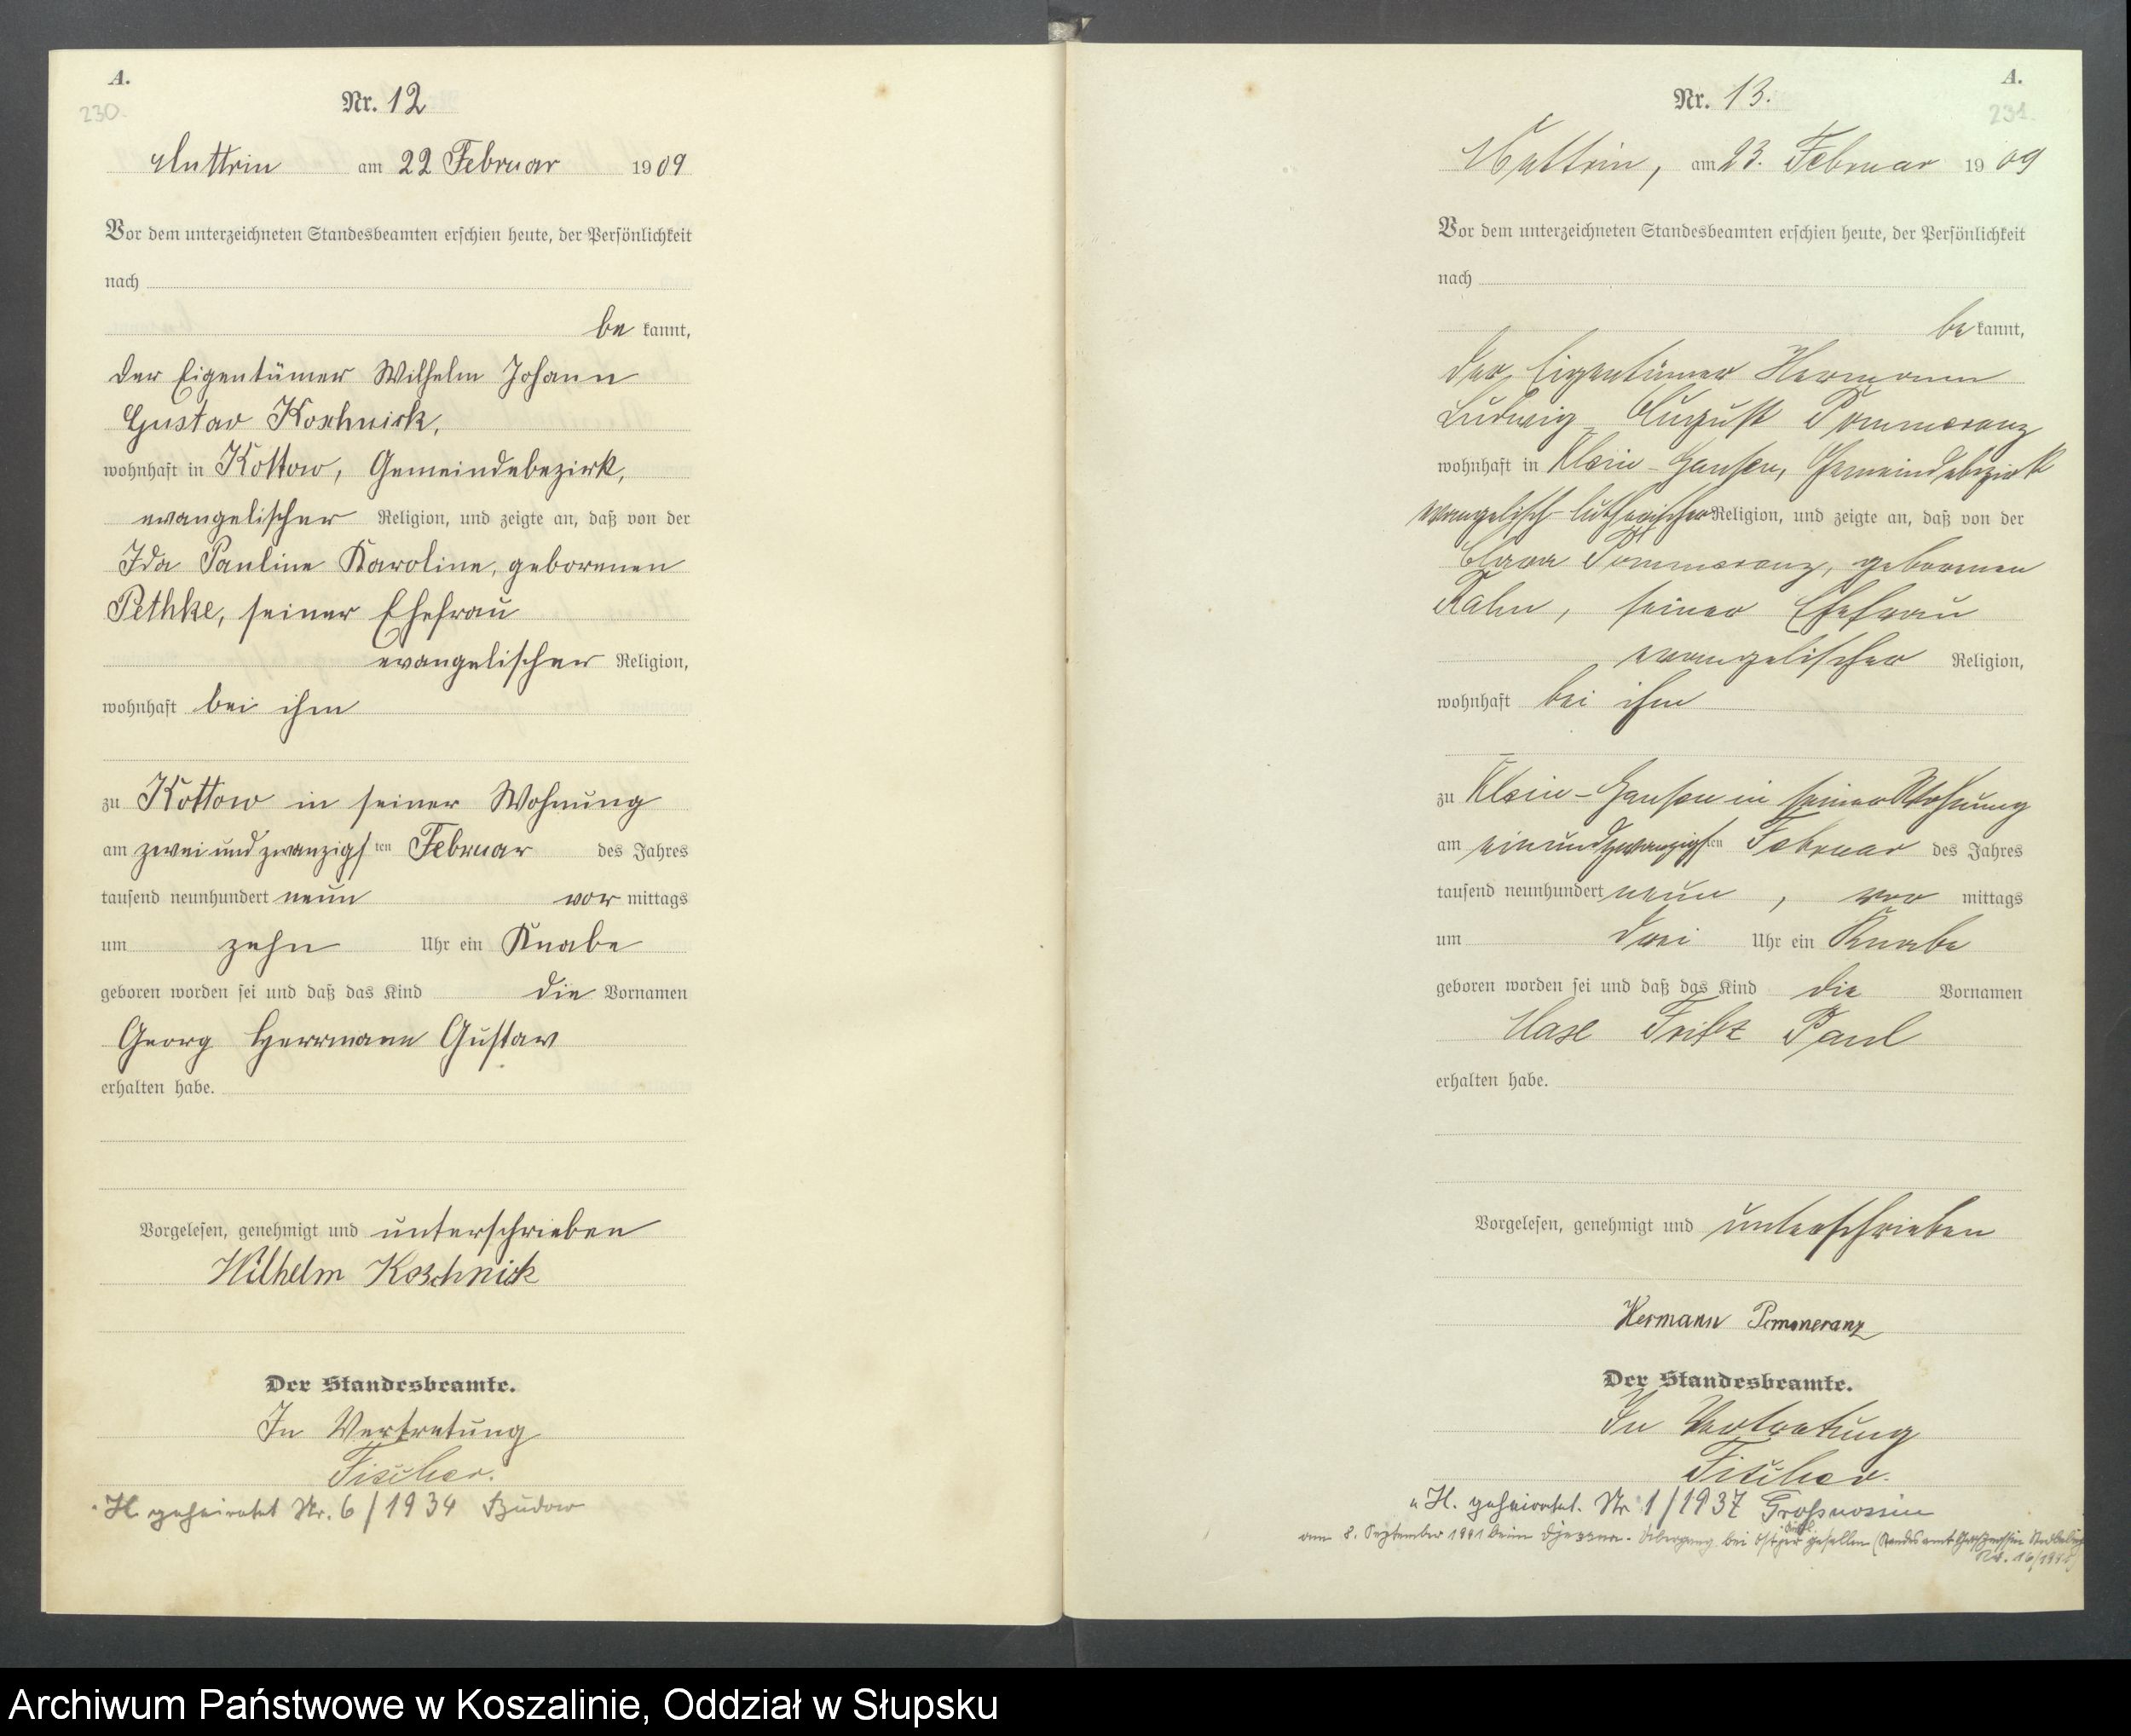 A.
230.
Nr. 12
Muttrin am 22 Februar 1909
Vor dem unterzeichneten Standesbeamten erschien heute, der Persönlichkeit
nach
be kannt,
der Eigentümer Wilhelm Johann
Gustav Koschnick,
wohnhaft in Kottow, Gemeindebezirk,
evangelischer Religion, und zeigte an, daß von der
Ida Pauline Karoline, geborenen
Pethke, seiner Ehefrau
evangelischer Religion,
wohnhaft bei ihm
zu Kottow in seiner Wohnung
am zwei und zwanzigsten Februar des Jahres
tausend neunhundert neun vor mittags
um zehn Uhr ein Knabe
geboren worden sei und daß das Kind die Vornamen
Georg Herrmann Gustav
erhalten habe.
Vorgelesen, genehmigt und unterschrieben
Wilhelm Koschnick
Der Standesbeamte.
In Vertretung
Fischer.
H. geheiratet Nr. 6/1934 Budow
A.
231.
Nr. 13.
Muttrin, am 23. Februar 1909
Vor dem unterzeichneten Standesbeamten erschien heute, der Persönlichkeit
nach
be kannt,
der Eigentümer Hermann
Ludwig August Pommeranz
wohnhaft in Klein-Gansen, Gemeindebezirk
evangelisch-lutherischer Religion, und zeigte an, daß von der
Clara Pommeranz, geborenen
Kalm, seiner Ehefrau
evangelischer Religion,
wohnhaft bei ihm
zu Klein-Gansen in seiner Wohnung
am einundzwanzigsten Februar des Jahres
tausend neunhundert neun, vor mittags
um drei Uhr ein Knabe
geboren worden sei und daß das Kind die Vornamen
Max Fritz Paul
erhalten habe.
Vorgelesen, genehmigt und unterschrieben
Hermann Pommeranz
Der Standesbeamte.
In Vertretung
Fischer.
H. geheiratet. Nr 1/1937 Großnossin
am 8. September 1941 beim Übergang bei gefallen (Standesamt
Nr. 16/
Archiwum Państwowe w Koszalinie, Oddział w Słupsku